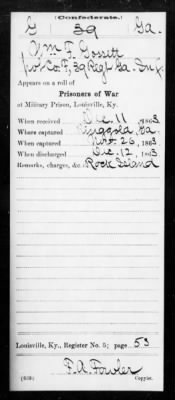 (Confederate.)
G 39 Ga.
Wm F. Gossett
Pvt Co. F, 39 Regt Ga. Inf.
Appears on a roll of
Prisoners of War
at Military Prison, Louisville, Ky.
When received Dec. 11, 1863
Where captured Ringgold, Ga
When captured Nov. 26, 1863
When discharged Dec. 12, 1863
Remarks, charges, &c. Rock Island
Louisville, Ky., Register No. 5; page 53
F. A. Fowler
Copyist.